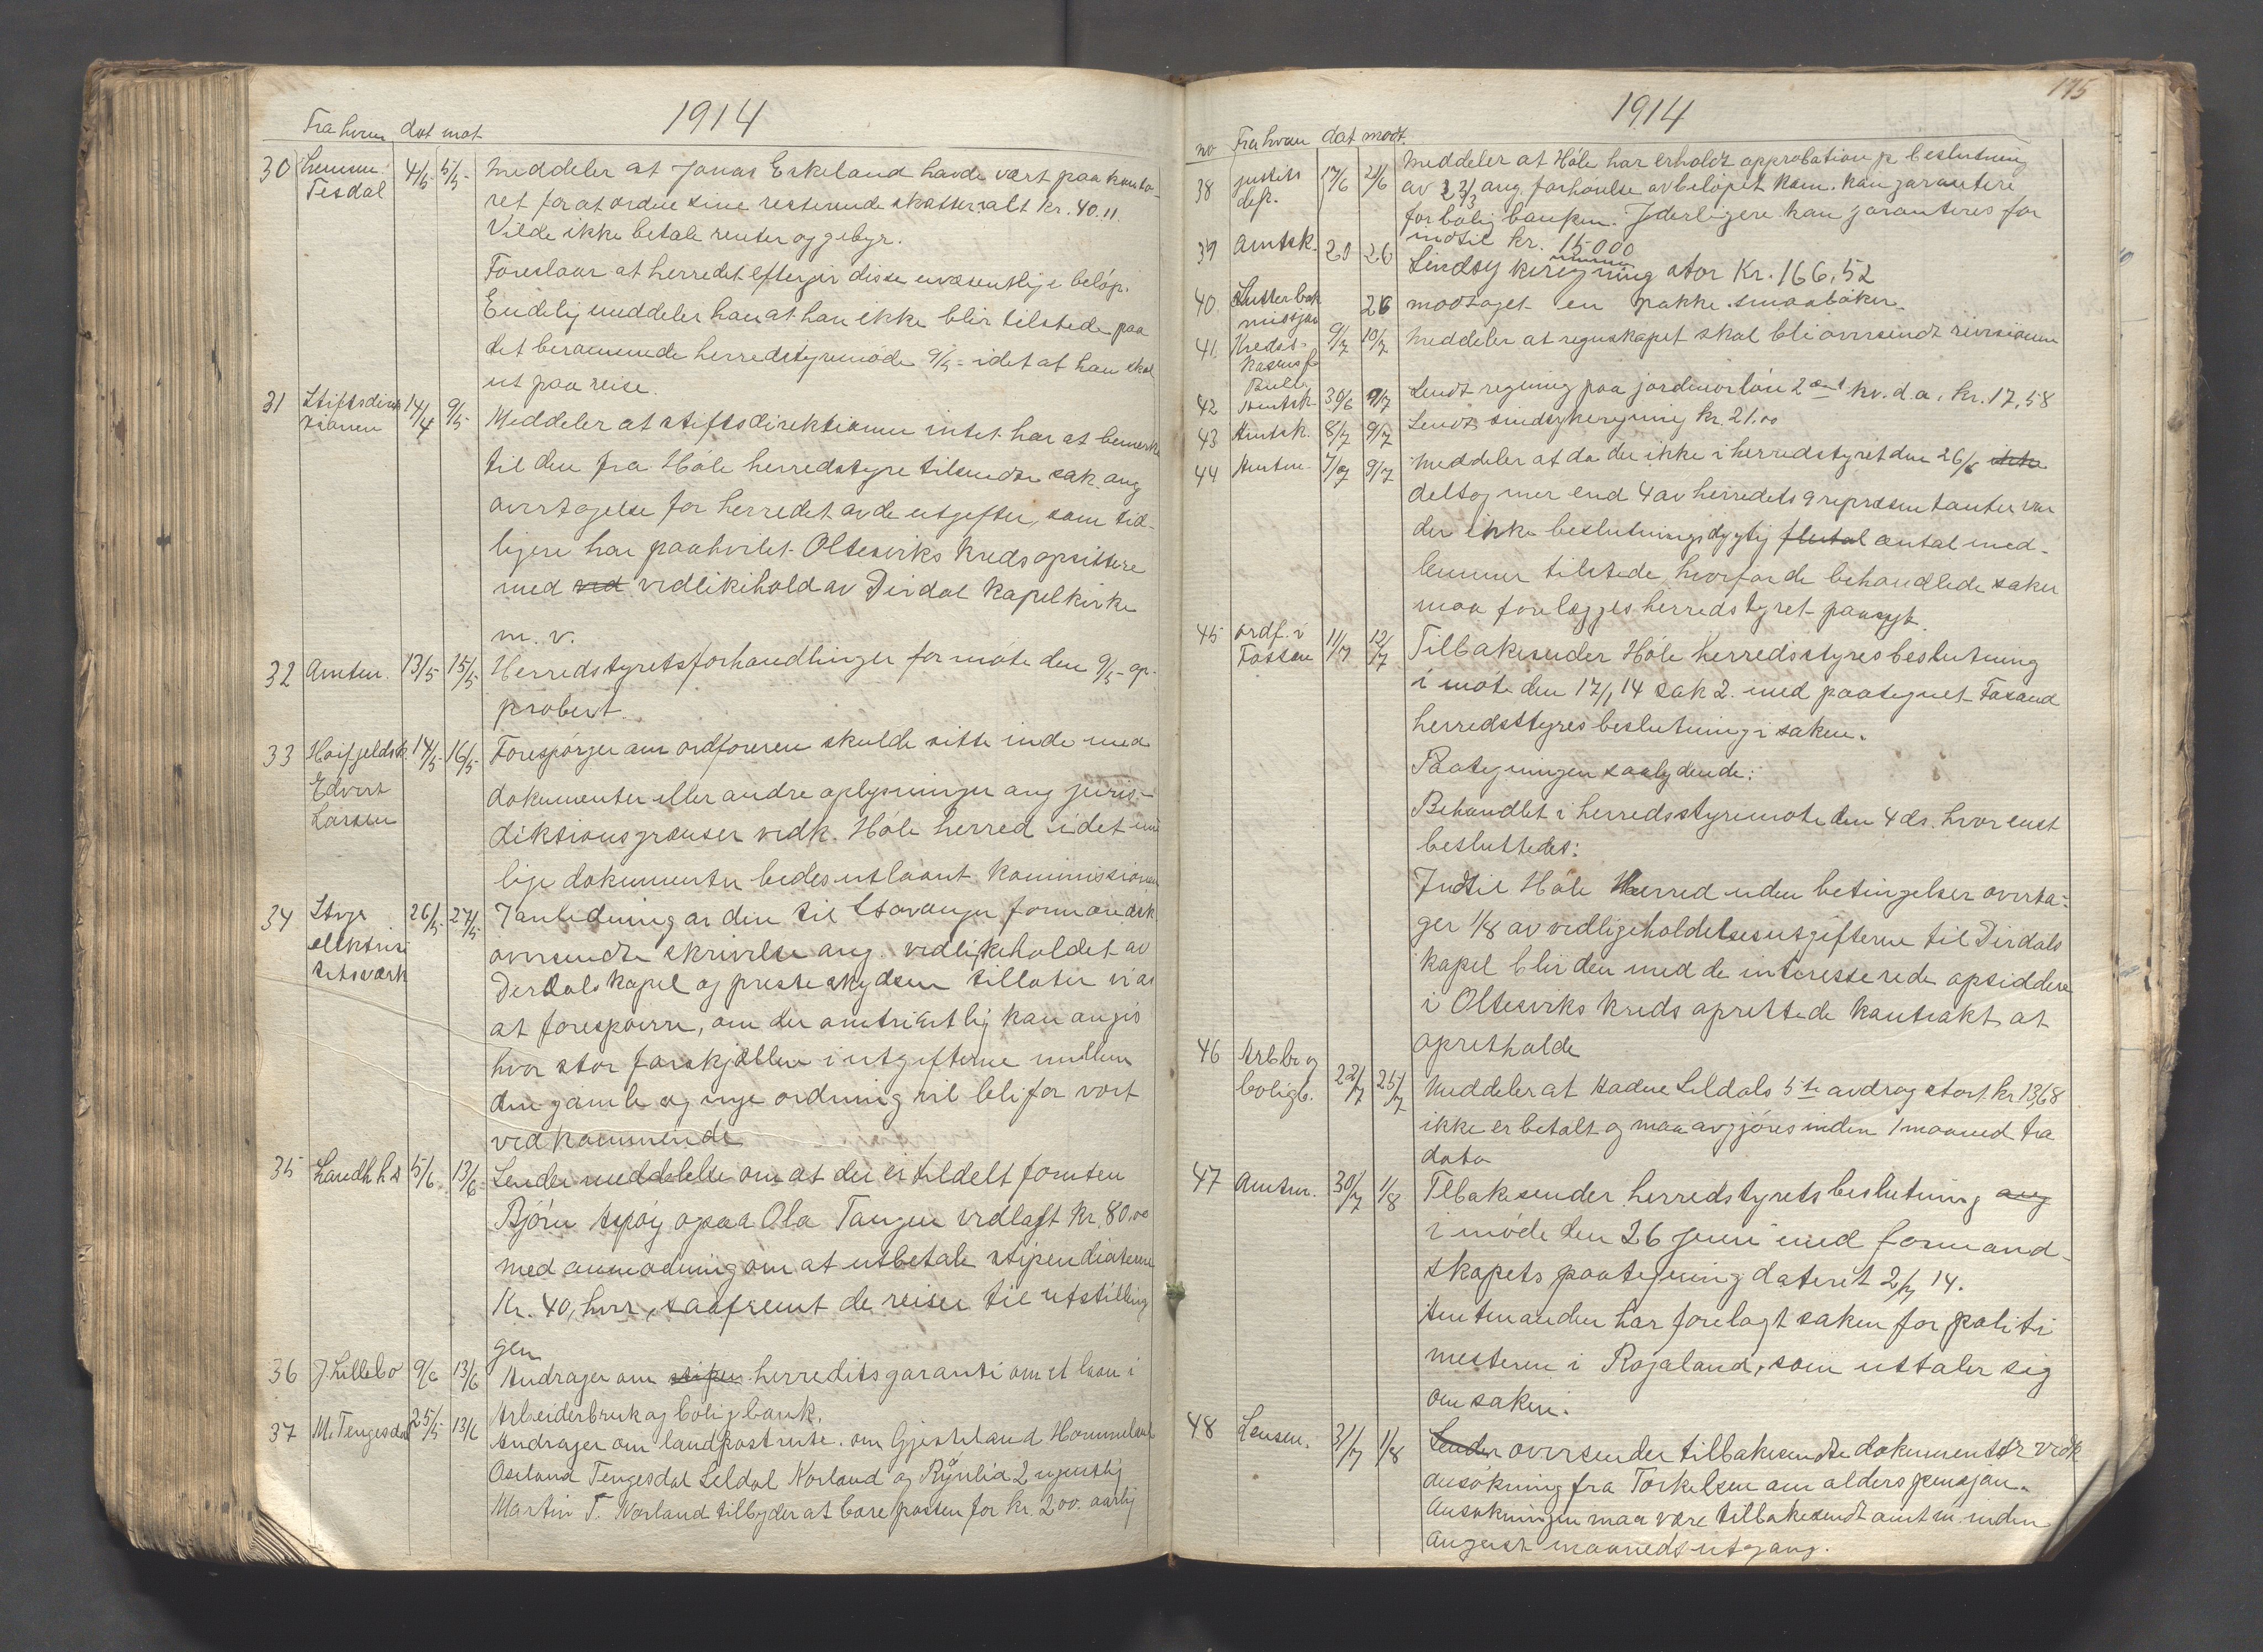 1914
Fra hvem dat mot
30 Lensm. Tesdal 4/5 5/5 Meddeler at Jonas Eskeland havde vært paa konto-
ret for at ordne sine resterende skatter ialt kr. 40.11.
Vilde ikke betale renter og gebyr.
Foreslaar at herredet eftergir disse uvæsentlige beløp.
Endelig meddeler han at han ikke blir tilstede paa
det berammede herredstyremøde 9/5 - idet at han skal
ut paa reise.
31 Stiftsdirek tionen 14/4 9/5 Meddeler at stiftsdirektionen intet har at bemerke
til den fra Høle herredstyre tilsendte sak ang
overtagelse for herredet av de utgifter, som tid-
ligere har paahvilet Oltesviks kreds opsittere
med ved vedlikehold av Dirdal Kapelkirke
m. v.
32 Amtm. 13/5 15/5 Herredstyretsforhandlinger for møte den 9/5 - ap-
probert.
33 Høifjeldsk. Edvert Larsen 14/5 16/5 Forespørger om ordføreren skulde sitte inde med
dokumenter eller andre oplysninger ang juris-
diktionsgrænser vedk. Høle herred idet mu
lige dokumenter bedes utlaant kommissionen
34 Stvgr elektrisi tetsværk 26/5 27/5 I anledning av den til Stavanger formandsk
oversendte skrivelse ang. vedlikeholdet av
Derdals kapel og presteskydsen tillater vi os
at forespørre, om der omtrientlig kan angis
hvor stor forskjællen i utgifterne mellem
den gamle og nye ordning vil bli for vort
vedkommende
35 Landh h s 5/6 13/6 Sender meddelelse om at der er tildelt
Bjørn Aspøy og Ola Tangen vedlagt kr. 80.00
med anmodning om at utbetale stipendiaterne
Kr. 40, hver, saafremt de reiser til utstilling
gen
36 J. Lillebø 9/6 13/6 Andrager om stipen herredits garanti om et laan i
Arbeiderbruk og boligbank.
37 M. Tengesdal 25/5 13/6 Andrager om landpostrute. om Gjesteland Hommeland
Oseland Tengesdal Seldal Norland og Rynlid 2 ugentlig
Martin T. Norland tilbyder at bære posten for kr. 200. aarlig
175
1914
no Fra hvem dat modt.
38 justits dep. 17/6 21/6 Meddeler at Høle har erholdt approbation p beslutning
av 21/3 ang. forhøielse av beløpet kom. kan garantere
for bolig banken. Yderligere kan garanteres for
indtil kr. 15000
39 Amtsk. 20 26 Sindsykeregning stor Kr. 166,52
40. 26 modtaget en pakke smaabøker
41. Kredit- 9/7 10/7 Meddeler at regnskapet skal bli oversendt revisionen
42 Amtsk. 30/6 9/7 Sendt regning paa jordmorløn 2 det kv. d. a. kr. 17,58
43 Amtsk. 8/7 9/7 Sendt sindsykeregning kr. 21.00
44 Amtm. 7/7 9/7 Meddeler at da der ikke i herredstyret den 26/6 ikke
deltog mer end 4 av herredets 9 repræsentanter var
der ikke beslutningsdygtig flertal antal med-
lemmer tilstede hvorfor de behandlede saker
maa forelægges herredstyret paanyt.
45 ordf. i Fossan 11/7 12/7 Tilbakesender Høle herredsstyres beslutning
i møte den 17/1 14 sak 2. med paategnet Fosand
herredsstyres beslutning i saken.
Paategningen saalydende:
Behandlet i herredsstyremøte den 4 ds. hvor enst
besluttedes:
Indtil Høle Herred uden betingelser overta-
ger 1/8 av vedligeholdelsesutgifterne til Dirdals
kapel blir den med de interesserede opsiddere
i Oltesviks kreds oprettede kontrakt at
opretholde
46 Arbbr og boligb. 22/7 25/7 Meddeler at Hadne Seldals 5te avdrag stort kr 13,68
ikke er betalt og maa avgjøres inden 1 maaned fra
dato
47 Amtm. 30/7 1/8 Tilbakesender herredstyrets beslutning ang
i møde den 26 juni med formand-
skapets paategning dateret 2/7 14.
Amtmanden har forelagt saken for politi
mesteren i Rogaland, som uttaler sig
om saken.
48 Lensm. 31/7 1/8 Sender oversender tilbakesendte dokumenter vedk
ansøkning fra Torkelsen om alderspensjon.
Ansøkningen maa være tilbakesendt amtm. inden
August maaneds utgang.